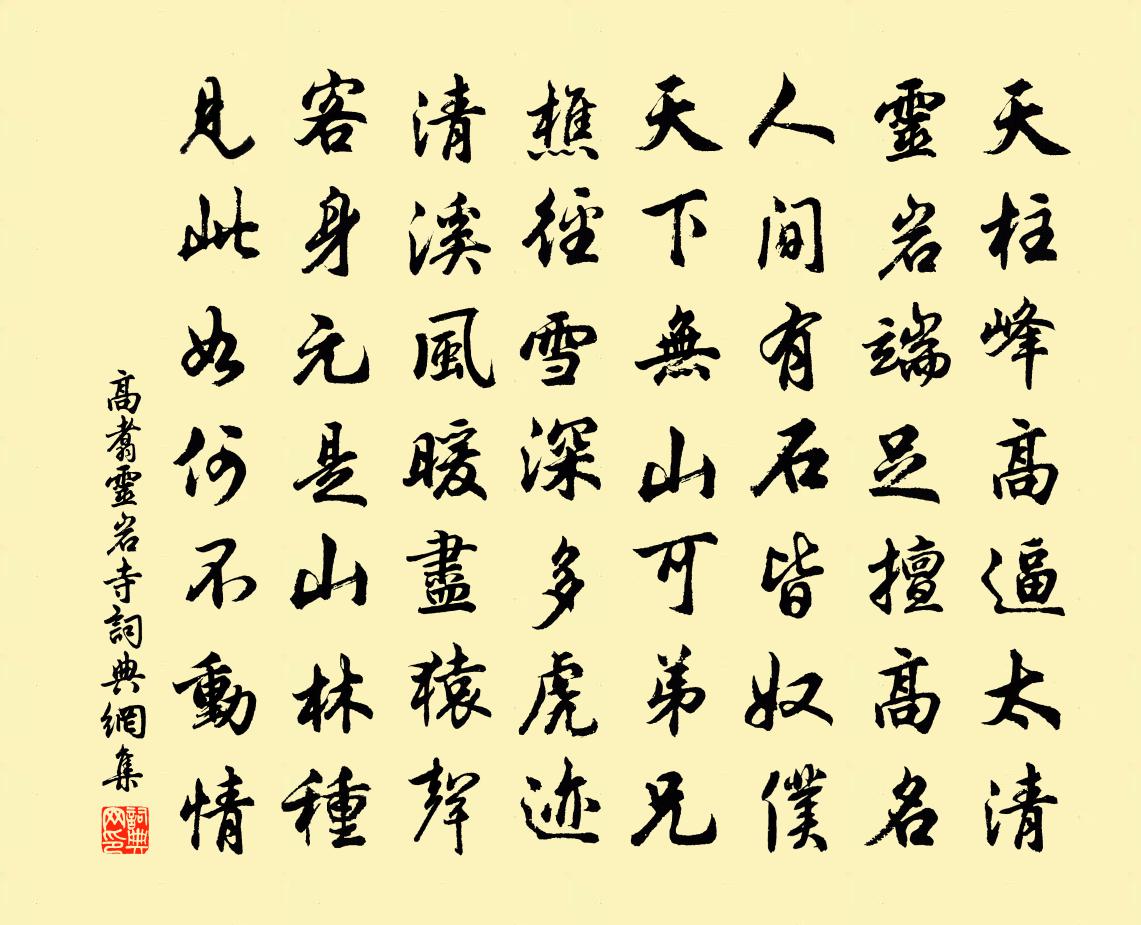 天柱峰高逼太清
靈岩端足擅高名
人間有石皆奴僕
天下無山可弟兄
樵徑雪深多虎迹
清溪風暖盡猿聲
客身元是山林種
見此如何不動情
高翥靈岩寺詞典網集
詞典
网印